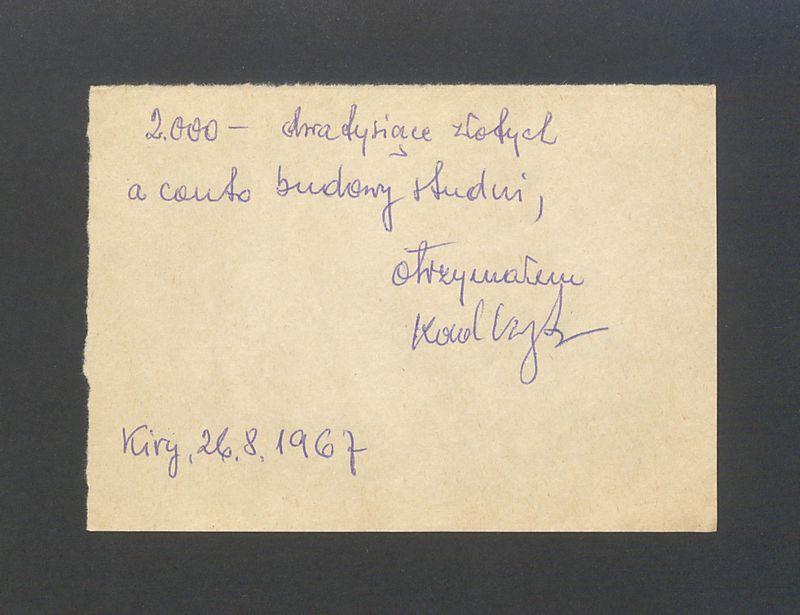 2.000 — dwatysiące złotych
a conto budowy studni,
otrzymałem
Kiry, 26.8.1967